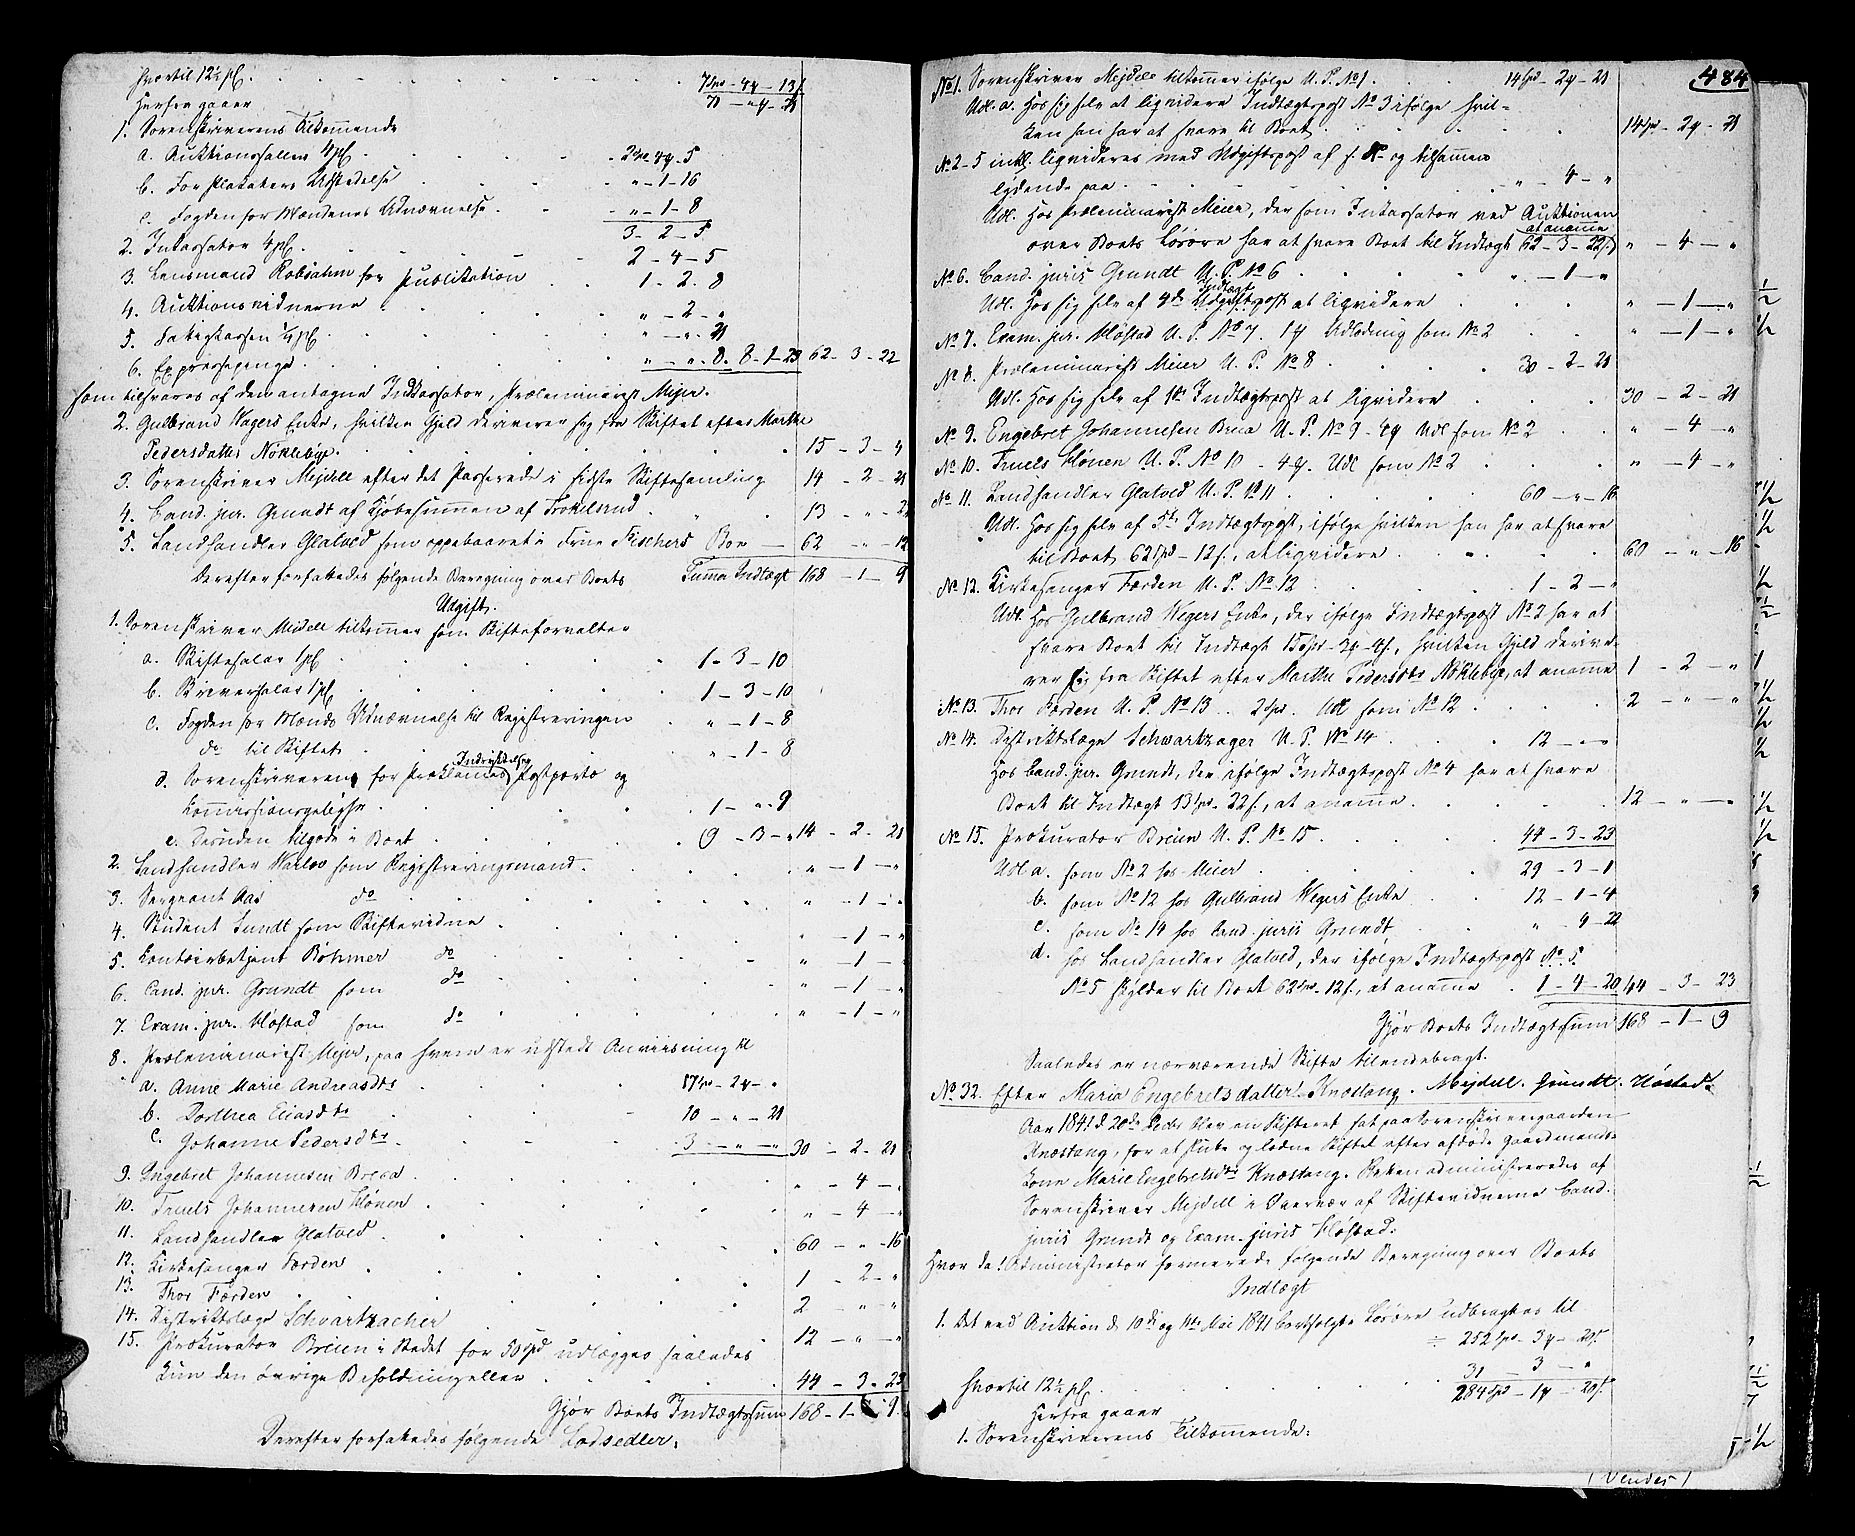 hvortil 12½ pC. . . . 7spd - 4 - 13
Herfra gaaer 71 - " - 21
1. Sorenskriverens Tilkommende
a. Auktionssallær 4 pC. . 2spd 4 5
b. For Plakaters Udstedelse . " - 1 - 16
c. Fogden for Mændenes Udnævnelse . " - 1 - 8
3 - 2 - 5
2. Inkassator 4 pC. . 2 - 4 - 5
3. Lensmand Robsahm for Publikation . 1 - 2 - 8
4. Auktionsvidnerne . " - 2 - "
5. Fattigkassen ¼ pC. . " - " - 21
6. Expressepenge . " - " - 8. 8 - 1 - 23 62 - 3 - 22
som tilsvares af den antagne Inkassator, Præliminarist Mejer.
2. Gulbrand Wegers Enke, hvilken Gjeld deriverer sig fra Skiftet efter Marthe
Pedersdatter Nøkleby . 15 - 3 - 4
3. Sorenskriver Mejdell efter det Passerede i sidste Skiftesamling 14 - 2 - 21
4. Cand. jur. Grundt af Kjøbesummen af . 13 - " - 22
5. Landhandler Glatved som oppebaaret i Frue Fischers Boe 62 - " - 12
Derefter forfattedes følgende Beregning over Boets Summa Indtægt 168 - 1 - 9
Udgift.
1. Sorenskriver Mejdell tilkommer som Skifteforvalter
a. Skiftesalær 1 pC . 1 - 3 - 10
b. Skriversalær 1 pC . 1 - 3 - 10
c. Fogden for Mænds Udnævnelse til Registreringen . " - 1 - 8
do til Skiftet . " - 1 - 8
d. Sorenskriveren for Proklamas Indrykkelse, Postporto og
Kommissionsgebyhr . 1 - " - 9
e. Desuden tilgode i Boet . 9 - 3 - " 14 - 2 - 21
2. Landhandler Warloe som Registreringsmand . " - 1 - "
3. Sergeant Aas do . " - 1 - "
4. Student Lundt som Skiftevidne . " - 1 - "
5. Kontoirbetjent Bøhmer do . " - 1 - "
6. Cand. jur. Grundt som do . " - 1 - "
7. Exam. jur. Høstad som do . " - 1 - "
8. Præliminarist Mejer, paa hvem er udstedt Anviisning til
a. Anne Marie Andreasdtr . 17spd - 2 - "
b. Dorthea Eliasdtr . 10 - " - 21
c. Johanne Pedersdtr . 3 - " - " 30 - 2 - 21
9. Engebret Johannesen Breia . " - 4 - "
10. Truels Johannesen Hønen . " - 4 - "
11. Landhandler Glatved . 60 - " - 16
12. Kirkesanger Færden . 1 - 2 - "
13. Thor Færden . 2 - " - "
14. Distriktslæge Schwartzacher . 12 - " - "
15. Prokurator Breien i Stedet for 50spd udlægges saaledes
kun den øvrige Beholdning eller . 44 - 3 - 23
Gjør Boets Indtægtssum 168 - 1 - 9.
Derefter forfattedes følgende Lodsedler:
484
No 1. Sorenskriver Mejdell tilkommer ifølge U. P. No 1 . 14spd - 2 - 21
Udl. a. Hos sig selv at liqvidere Indtægtspost No 3 ifølge hvil-
ken han har at svare til Boet . 14spd - 2 - 21
No 2-5 inkl. liqvideres med Udgiftspost af s. No og tilsammen
lydende paa . " - 4 - "
Udl. Hos Præliminarist Meier, der som Inkassator ved Auktionen
over Boets Løsøre har at svare Boet til Indtægt 62 - 3 - 22, at anamme " - 4 - "
No 6. Cand. juris Grundt U. P. No 6 . " - 1 - "
Udl. Hos sig selv af 4de Indtægtspost at liqvidere . " - 1 - "
No 7. Exam. jur. Høstad U. P. No 7. 1 Udlodning som No 2 . " - 1 - "
No 8. Præliminarist Meier U. P. No 8 . 30 - 2 - 21
Udl. Hos sig selv af 1ste Indtægtspost at liqvidere . 30 - 2 - 21
No 9. Engebret Johannesen Breia U. P. No 9 - 4 Udl som No 2 . " - 4 - "
No 10. Truels Hønen U. P. No 10 - 4. Udl som No 2 . " - 4 - "
No 11. Landhandler Glatved U. P. No 11 . 60 - " - 16
Udl. Hos sig selv af 5te Indtægtspost, ifølge hvilken han har at svare
til Boet 62spd - 12s, at liqvidere . 60 - " - 16
No 12. Kirkesanger Færden U. P. No 12 . 1 - 2 - "
Udl. Hos Gulbrand Wegers Enke, der ifølge Indtægtspost No 2 har at
svare Boet til Indtægt 15spd - 3 - 4s, hvilken Gjeld derive-
rer sig fra Skiftet efter Marthe Pedersdtr Nøkleby, at anamme 1 - 2 - "
No 13. Thor Færden U. P. No 13 . 2spd. Udl som No 12 . 2 - " - "
No 14. Distriktslæge Schwartzager U. P. No 14 . 12 - " - "
Hos Cand. jur. Grundt, der ifølge Indtægtspost No 4 har at svare
Boet til Indtægt 13spd - 22s, at anamme . 12 - " - "
No 15. Prokurator Breien U. P. No 15 . 44 - 3 - 23
Udl a. som No 2 hos Meier . 29 - 3 - 1
b. som No 12 hos Gulbrand Wegers Enke . 12 - 1 - 4
c. som No 14 hos Cand. juris Grundt . " - 4 - 22
d. hos Landhandler Glatved, der ifølge Indtægtspost No 5.
No 5 skylder til Boet 62spd - 12s, at anamme . 1 - 4 - 20 44 - 3 - 23
Gjør Boets Indtægtssum 168 - 1 - 9
Saaledes er nærværende Skifte tilendebragt.
Mejdell. Grundt. Høstad.
No 32. Efter Maria Engebretsdatter Knæstang.
Aar 1841 d. 20de Decbr blev en Skifteret sat paa Sorenskrivergaarden
Knæstang, for at slutte og lodne Skiftet efter afdøde Gaardmands-
kone Marie Engebretsdtr Knæstang. Retten administreredes af
Sorenskriver Mejdell i Overvær af Skiftevidnerne Cand.
juris Grundt og Exam. juris Høstad.
Hvor da! Administrator formerede følgende Beregning over Boets
Indtægt
1. Det ved Auktion d. 10de og 11te Mai 1841 bortsolgte Løsøre udbragtes til
252spd - 3 - 20s
hvortil 12½ pC . 31 3 - "
284spd - 1 - 20s
Herfra gaaer
1. Sorenskriverens Tilkommende:
(Vendes)